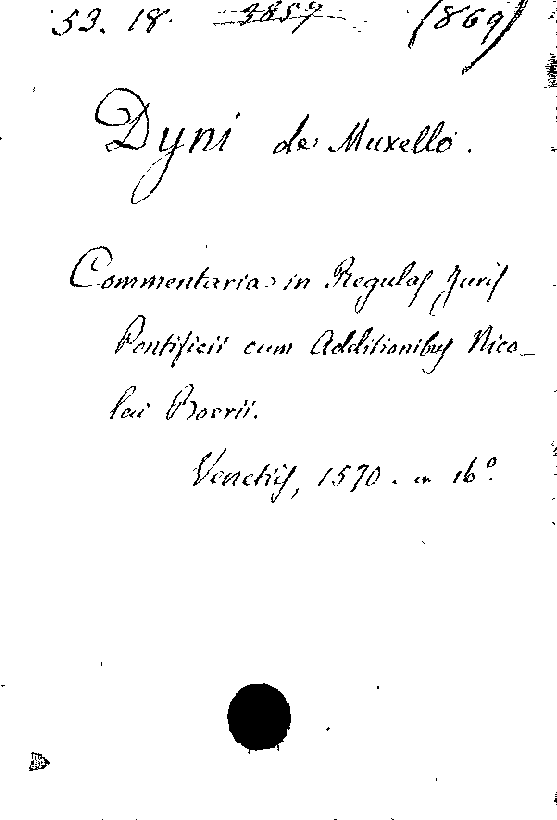 53. 18. 3859 (869)
Dyni de Muxello.
Commentaria in Regulas Juris
Pontificii cum Additionibus Nico-
lai Boerii.
Venetiis, 1570. in 16°.